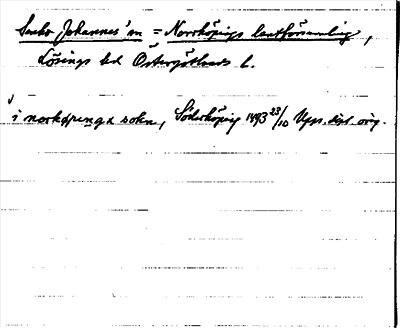 Sankt Johannes' sn = Norrköpings landsförsamling,
Lösings hd Östergötlands l.
i norkøpunga sokn, Söderköping 1493 23/10 Ups. dipl. orig.